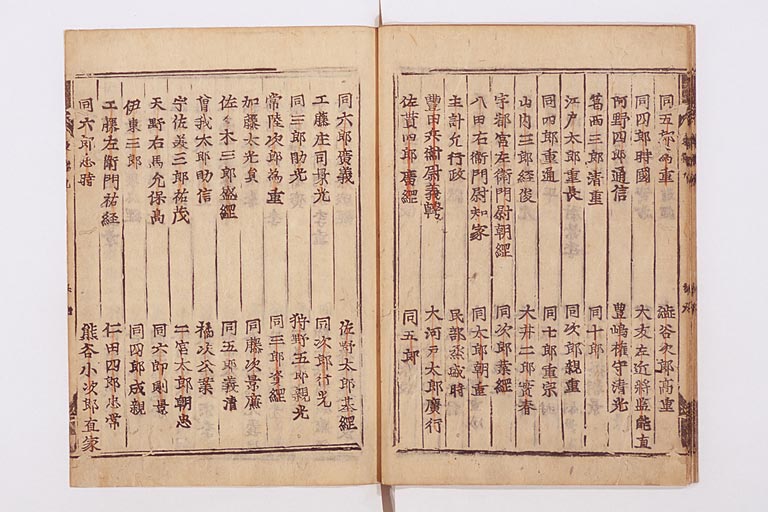 同五郎為重　澁谷次郎高重
同四郎時國　大友左近將監能直
阿野四郎通信　豊嶋權守清光
葛西三郎清重　同十郎
江戸太郎重長　同次郎親重
同四郎重通　同十郎重宗
山内三郎經俊　大井二郎實春
宇都宮左衛門尉朝經　同次郎業經
八田右衛門尉知家　同太郎朝重
主計允行政　民部丞盛時
豊田兵衛尉義幹　大河戸太郎廣行
佐貫四郎廣經　同五郎
同六郎廣義　佐野太郎基經
工藤庄司景光　同次郎行光
同三郎助光　狩野五郎親光
常陸次郎為重　同三郎資經
加藤太光員　同藤次景廉
佐々木三郎盛經　同五郎義清
曾我太郎助信　橘次公業
宇佐美三郎祐茂　二宮太郎朝忠
天野右馬允保高　同六郎則景
伊東三郎　同四郎成親
工藤左衛門祐經　仁田四郎忠常
同六郎忠時　熊谷小次郎直家